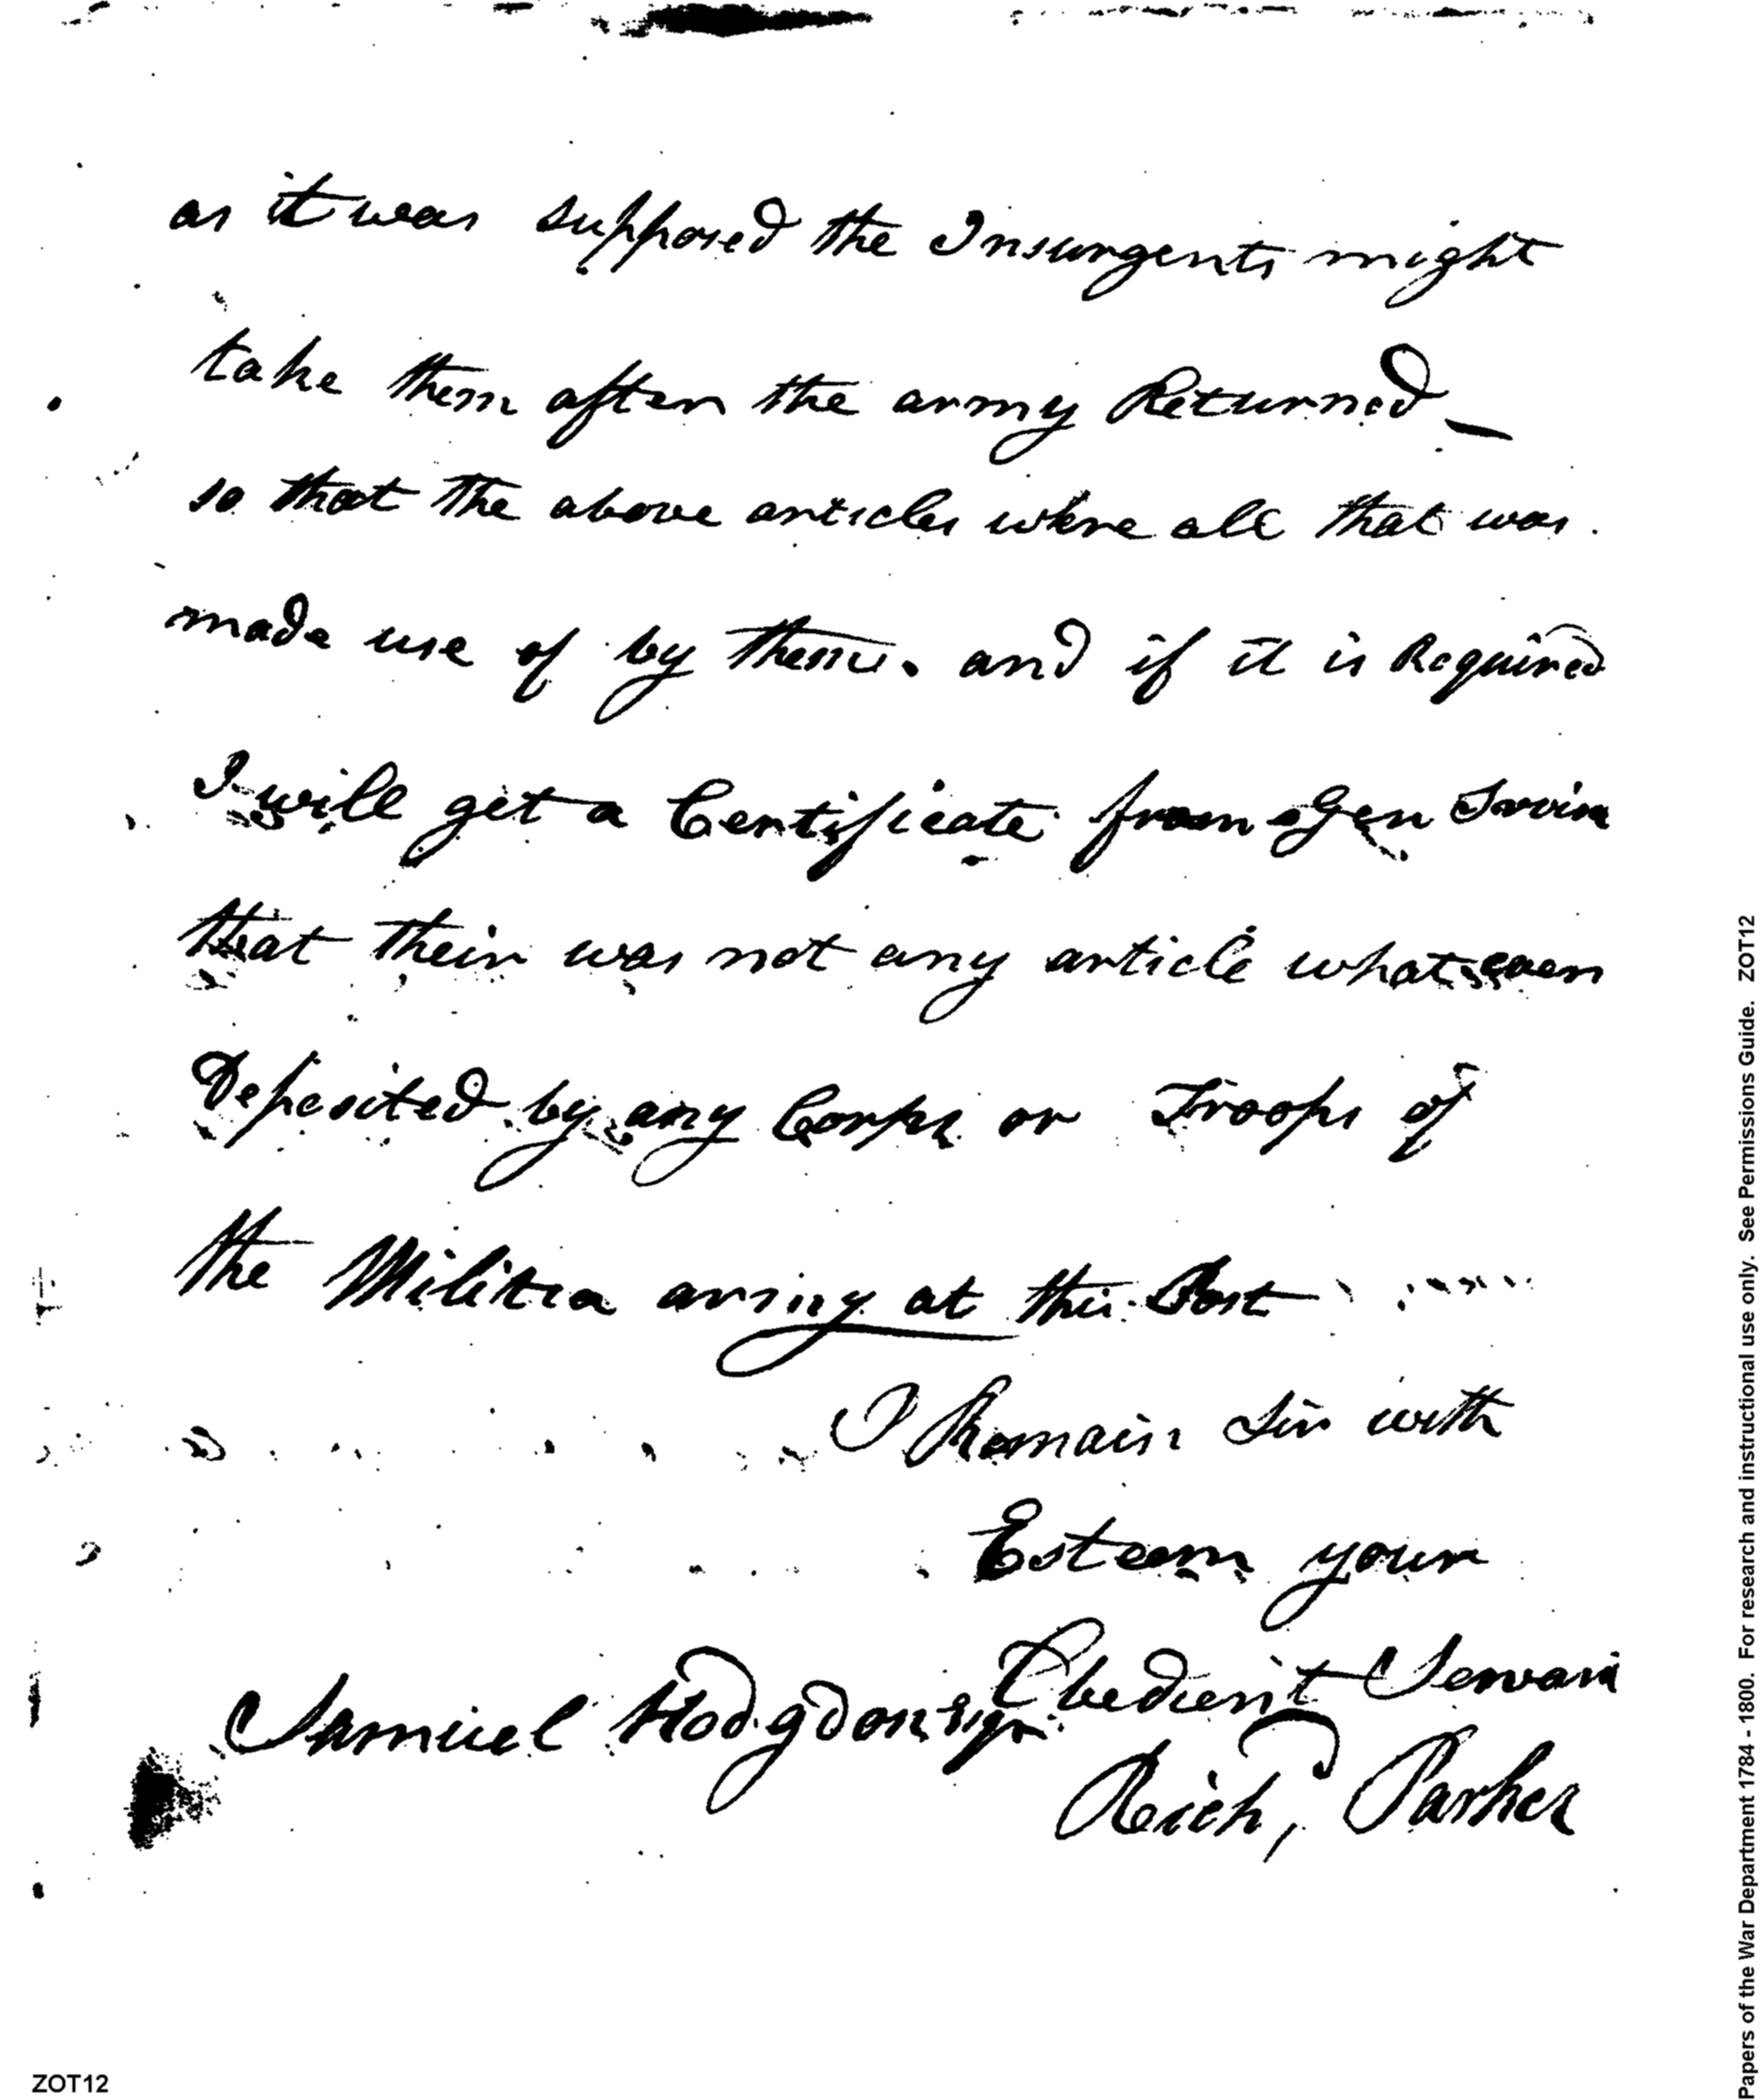 as it was supposed the Insurgents might
take them after the army Returned —
so that the above articles where all that was
made use of by them. and if it is Required
I will get a Certificate from Gen Irvin
that their was not any article whatsever
Deposited by any Corps or Troops of
the Militia army at this Post
I Remain Sir with
Esteem your
Obedient Servant
Samuel Hodgdon Esqr.
Rich, Parker
Papers of the War Department 1784 - 1800. For research and instructional use only. See Permissions Guide. ZOT12
ZOT12